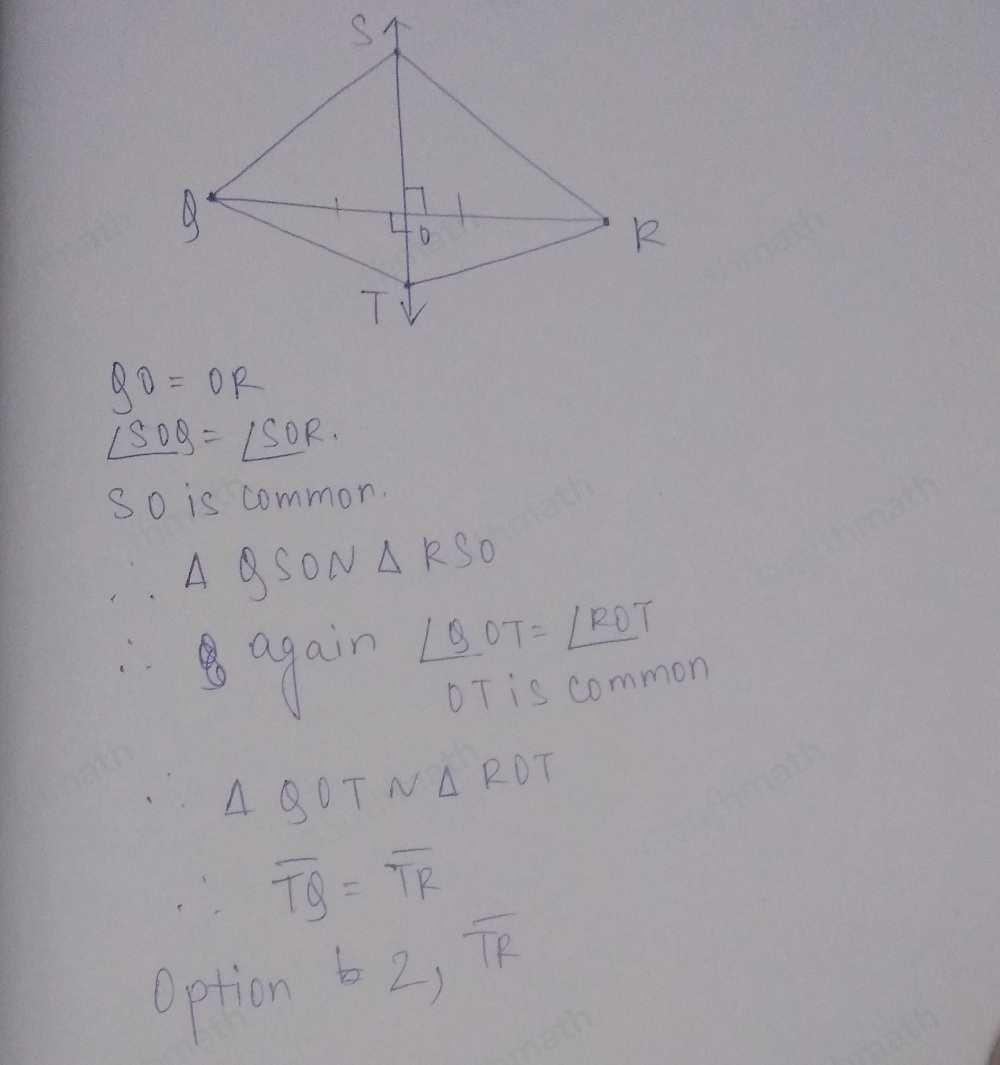 S
Q
O
R
T
QO = OR
∠SOQ = ∠SOR.
SO is common.
∴ Δ QSO ~ Δ RSO
∴ again ∠QOT = ∠ROT
OT is common
∴ Δ QOT ~ Δ ROT
∴ T̅Q̅ = T̅R̅
Option 2, T̅R̅